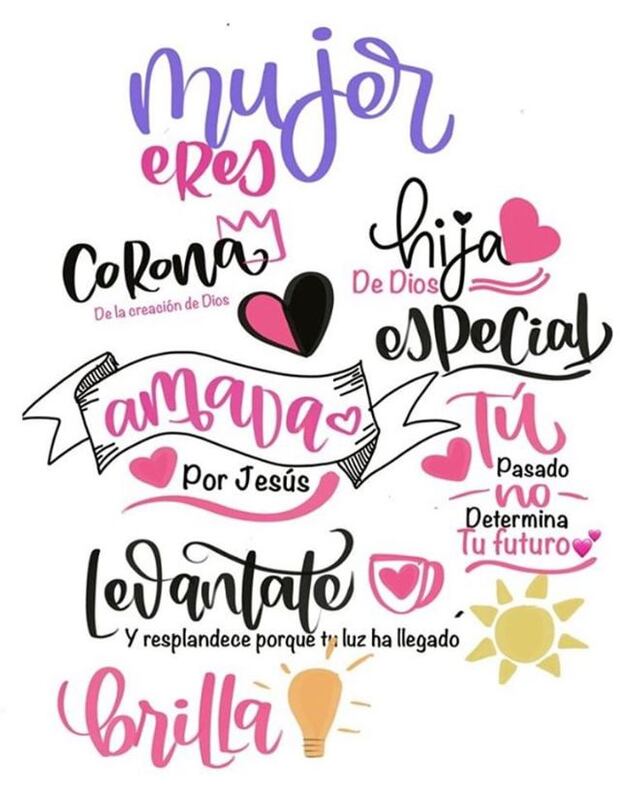 mujer
eres
Corona
De la creación de Dios
hija
De Dios
especial
Amada
Por Jesús
Tú
Pasado
no
Determina
Tu futuro
Levantate
Y resplandece porque tu luz ha llegado
brilla